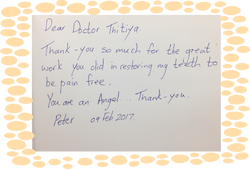 Dear Doctor Thitiya.
Thank-you so much for the great
work you did in restoring my teeth to
be pain free.
You are an Angel .. Thank-you.
Peter 09 Feb 2017